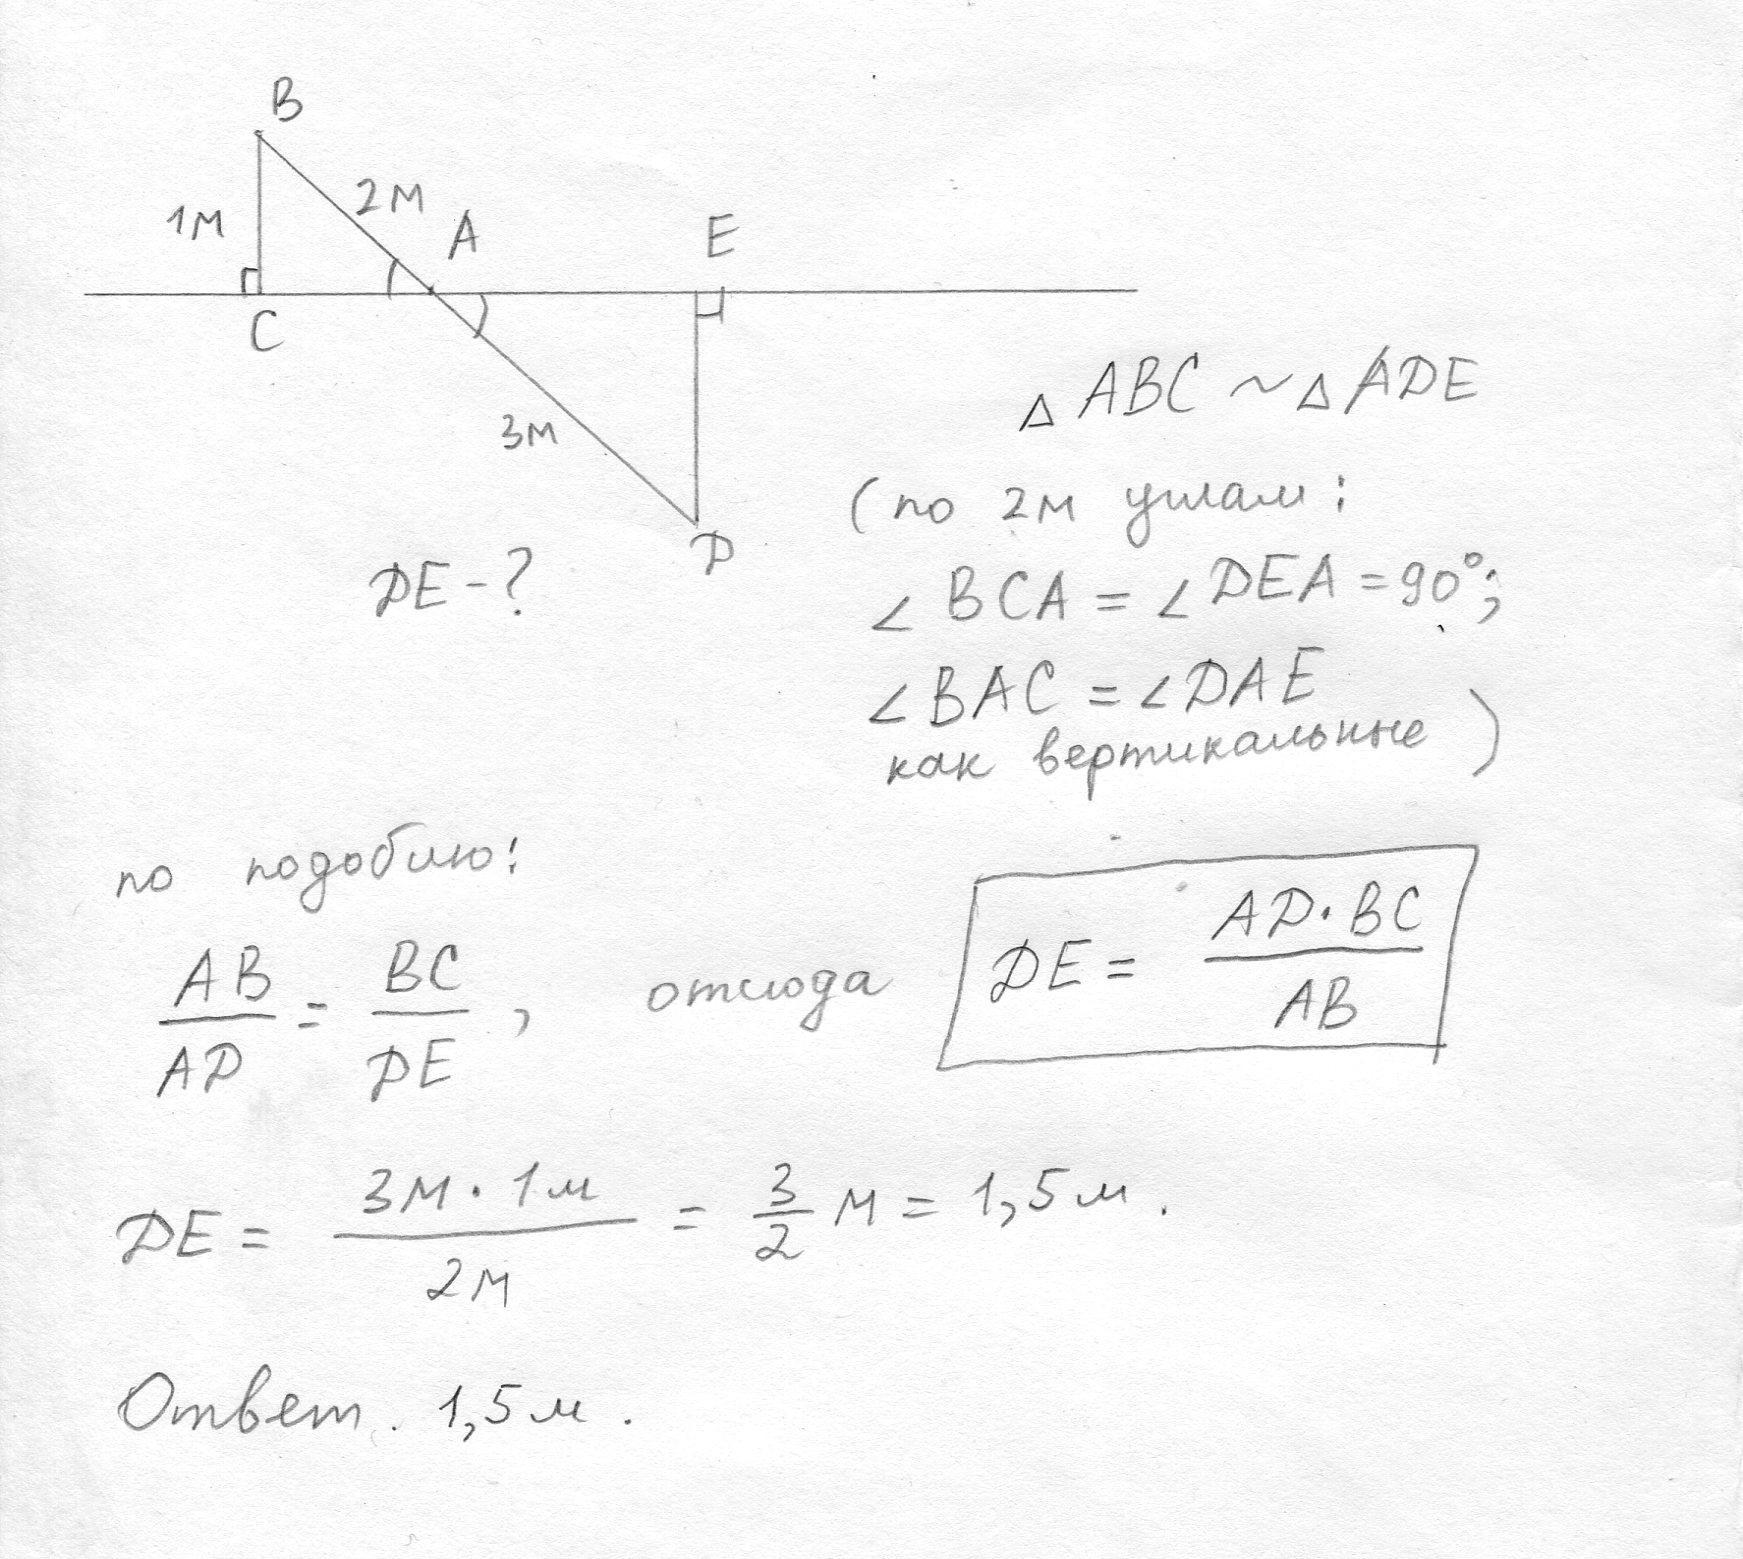 B
1м
2м
A
E
C
3м
D
△ ABC ~ △ ADE
(по 2м углам:
∠ BCA = ∠ DEA = 90°;
∠ BAC = ∠ DAE
как вертикальные)
DE - ?
по подобию:
AB/AD = BC/DE, отсюда DE = AD·BC/AB
DE = 3м · 1м/2м = 3/2 м = 1,5 м.
Ответ. 1,5 м.